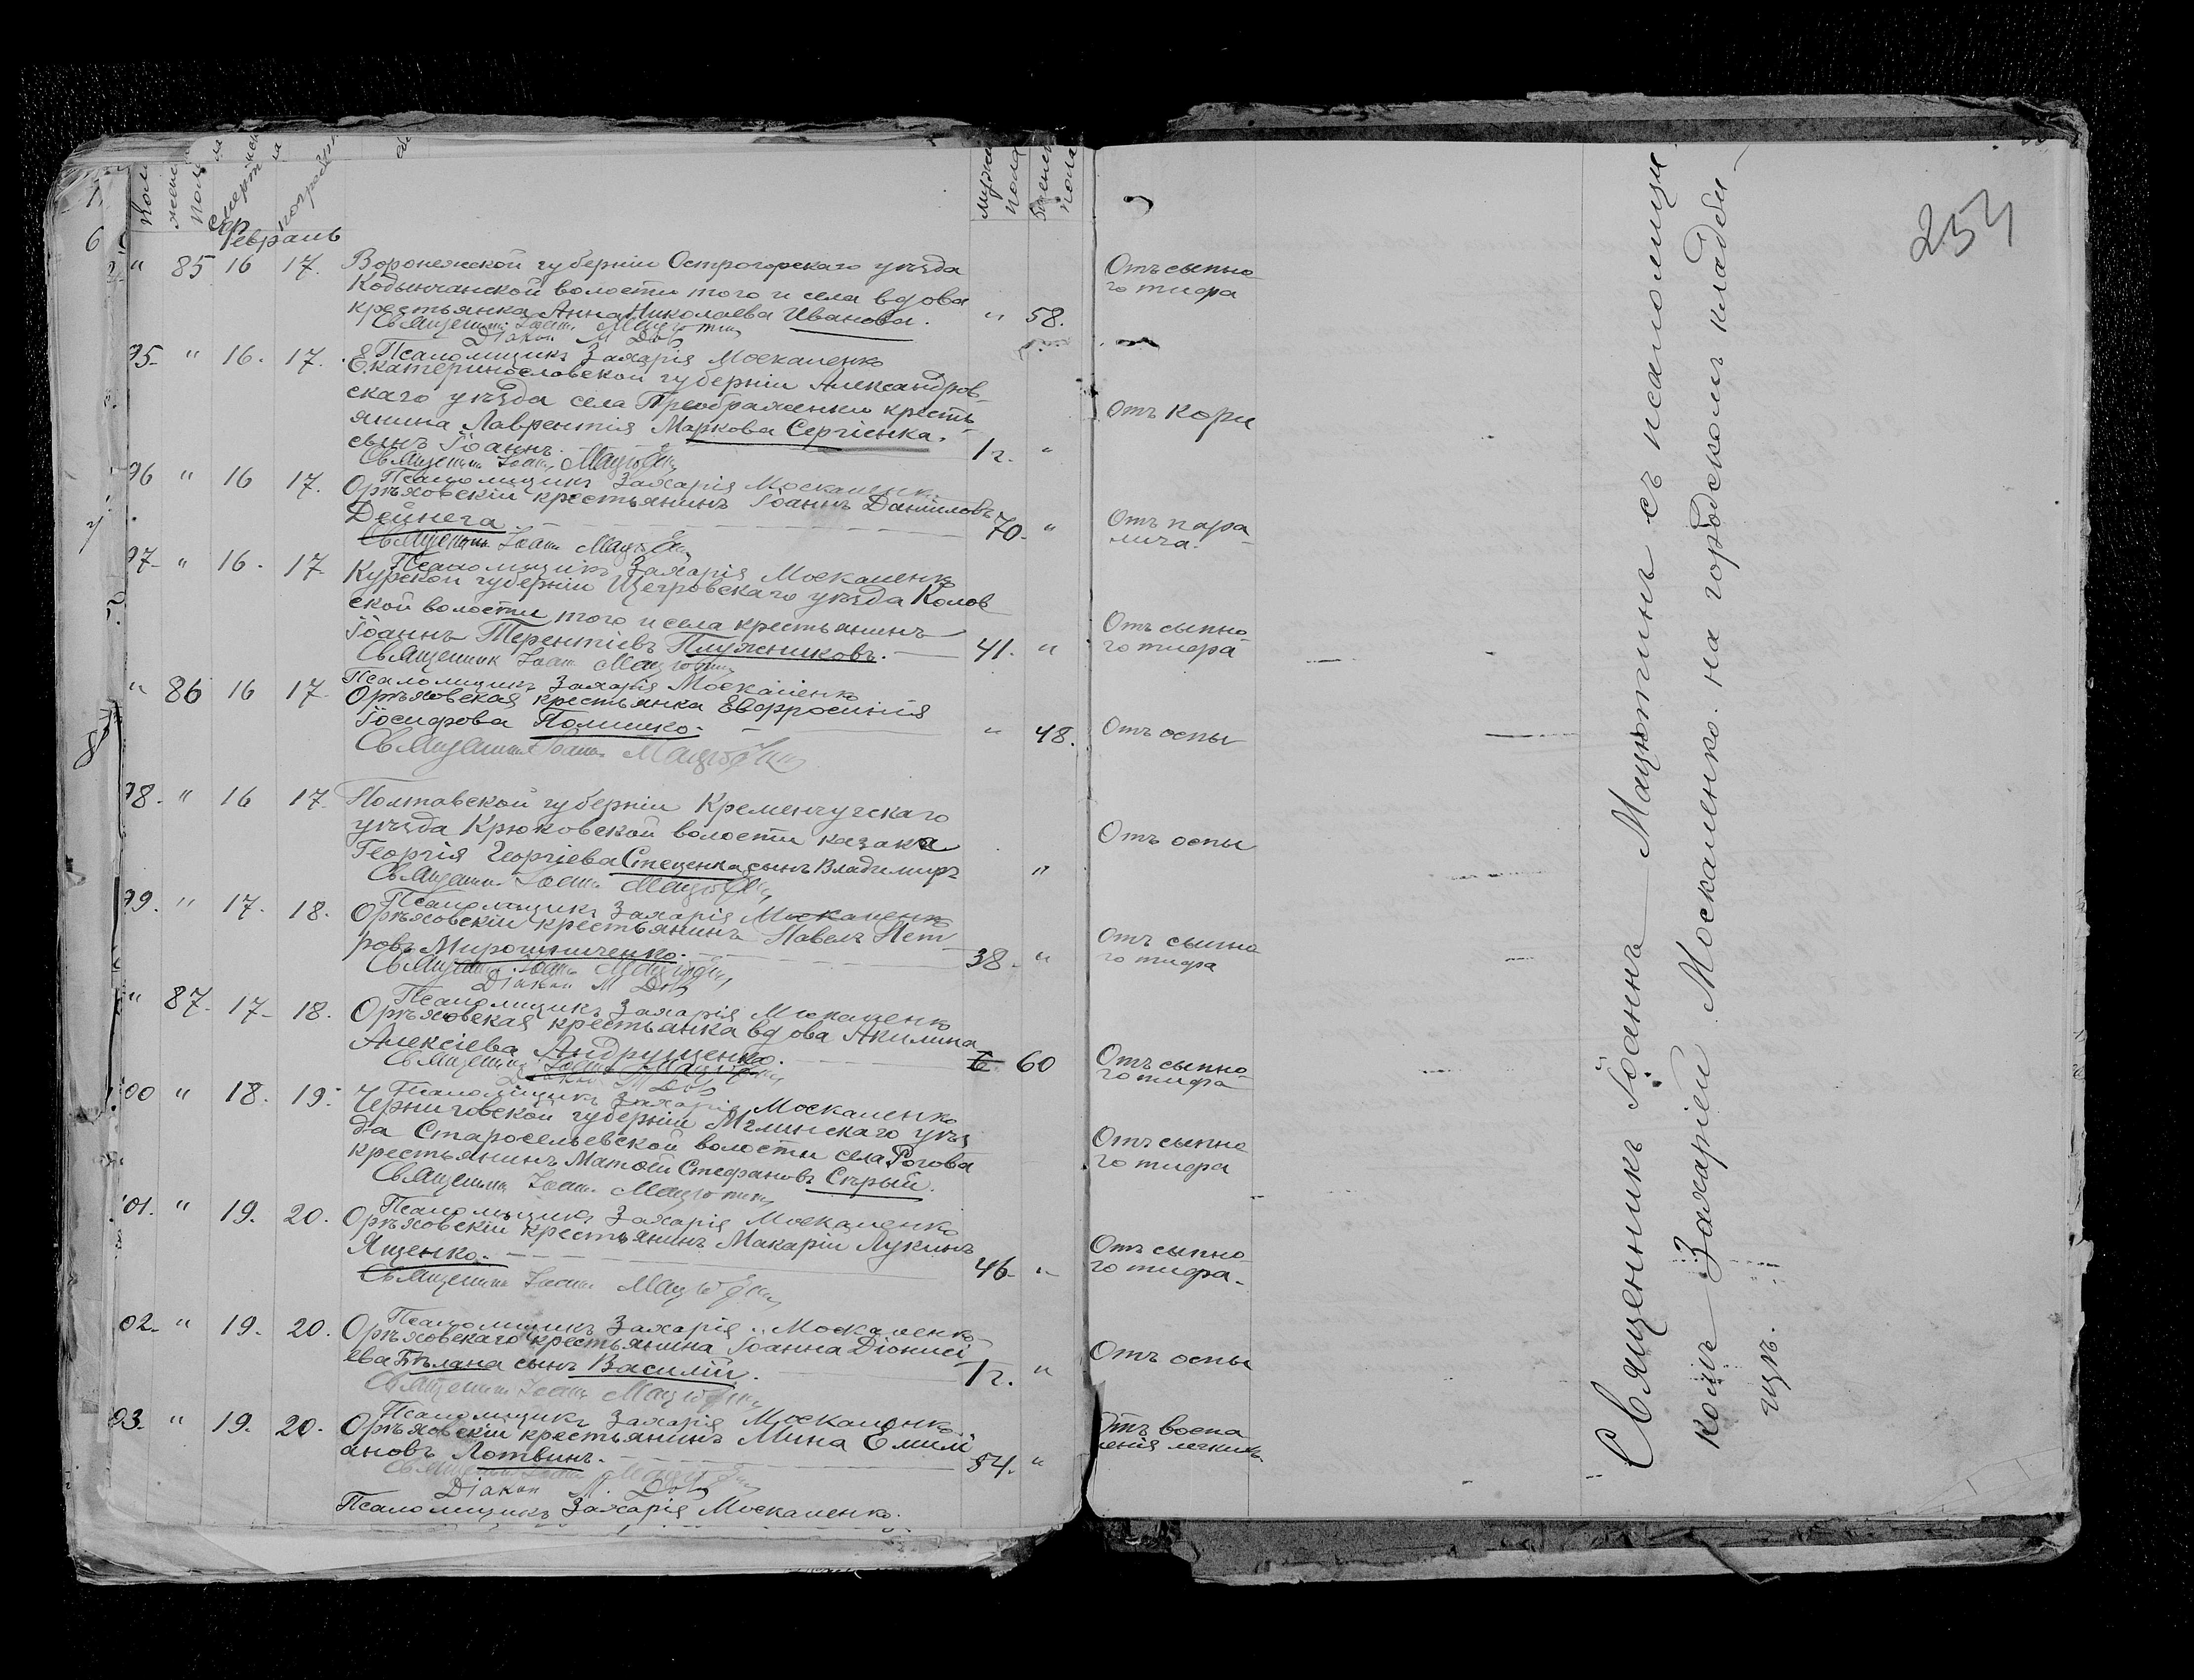 пола
женск
пола
смерт
погребен
мужск
пола
женск
пола
254
Февраль
" 85 16 17. Воронежской губерніи Острогорскаго уѣзда
Кодынчанской волости того и села вдова
крестьянка Анна Николаева Иванова. " 58.
Отъ сыпно-
го тифа
Священникъ Іоаннъ Мацютинъ
Діакон М Дов
Псаломщикъ Захарія Москаленко
95- " 16. 17. Екатеринославской губерніи Александров-
скаго уѣзда села Преображенки кресть-
янина Лаврентія Маркова Сергіенка.
сынъ Іоаннъ. 1 г. "
Отъ кори
Священникъ Іоаннъ Мацютинъ
Псаломщикъ Захарія Москаленко
96 " 16 17. Орѣховскій крестьянинъ Іоаннъ Даніиловъ
Дейнега 70. "
Отъ пара-
лича.
Священникъ Іоаннъ Мацютинъ
Псаломщикъ Захарія Москаленко
97- " 16. 17 Курской губерніи Щегровскаго уѣзда Колов
ской волости того и села крестьянинъ
Іоаннъ Терентіевъ Плужниковъ. 41. "
Отъ сыпно-
го тифа
Священник Іоаннъ Мацютинъ
Псаломщикъ Захарія Москаленко
" 86 16 17 Орѣховская крестьянка Евфросинія
Іосифова Помишко. " 48.
Отъ оспы
Священникъ Іоаннъ Мацютинъ
98. " 16 17 Полтавской губерніи Кременчугскаго
уѣзда Крюковской волости казака
Георгія Георгіева Стеценка сынъ Владимиръ "
Отъ оспы
Священникъ Іоаннъ Мацютинъ
Псаломщикъ Захарія Москаленко
99. " 17. 18. Орѣховскій крестьянинъ Павелъ Пет-
ровъ Мирошниченко. 38. "
Отъ сыпно
го тифа
Священникъ Іоаннъ Мацютинъ
Діакон М Дов
Псаломщикъ Захарія Москаленко
" 87. 17- 18. Орѣховская крестьянка вдова Акилина
Алексіева Андрущенко. 60
Отъ сыпно-
го тифа
Священникъ Іоаннъ Мацютинъ
Діакон М Дов
Псаломщикъ Захарія Москаленко
100 " 18. 19. Черниговской губерніи Мглинскаго уѣз
да Старосельевской волости села Рогова
крестьянинъ Матѳей Стефановъ Сѣрый.
Отъ сыпно
го тифа
Священникъ Іоаннъ Мацютинъ
Псаломщикъ Захарія Москаленко
101. " 19. 20. Орѣховскій крестьянинъ Макарій Лукинъ
Ященко. 46. "
Отъ сыпно
го тифа.
Священникъ Іоаннъ Мацютинъ
Псаломщикъ Захарія Москаленко
02. " 19. 20. Орѣховскаго крестьянина Іоанна Діонисі
ева Бѣлана сынъ Василій. 1 г. "
Отъ оспы
Священникъ Іоаннъ Мацютинъ
Псаломщикъ Захарія Москаленко
03. " 19. 20. Орѣховскій крестьянинъ Мина Емилі
ановъ Лотвинъ. 54. "
Отъ воспа
ленія легкихъ
Священникъ Іоаннъ Мацютинъ
Діакон М. Дов
Псаломщикъ Захарія Москаленко.
Священникъ Іоаннъ Мацютинъ съ псаломщи
комъ Захаріей Москаленко. на городскомъ кладби-
щѣ.